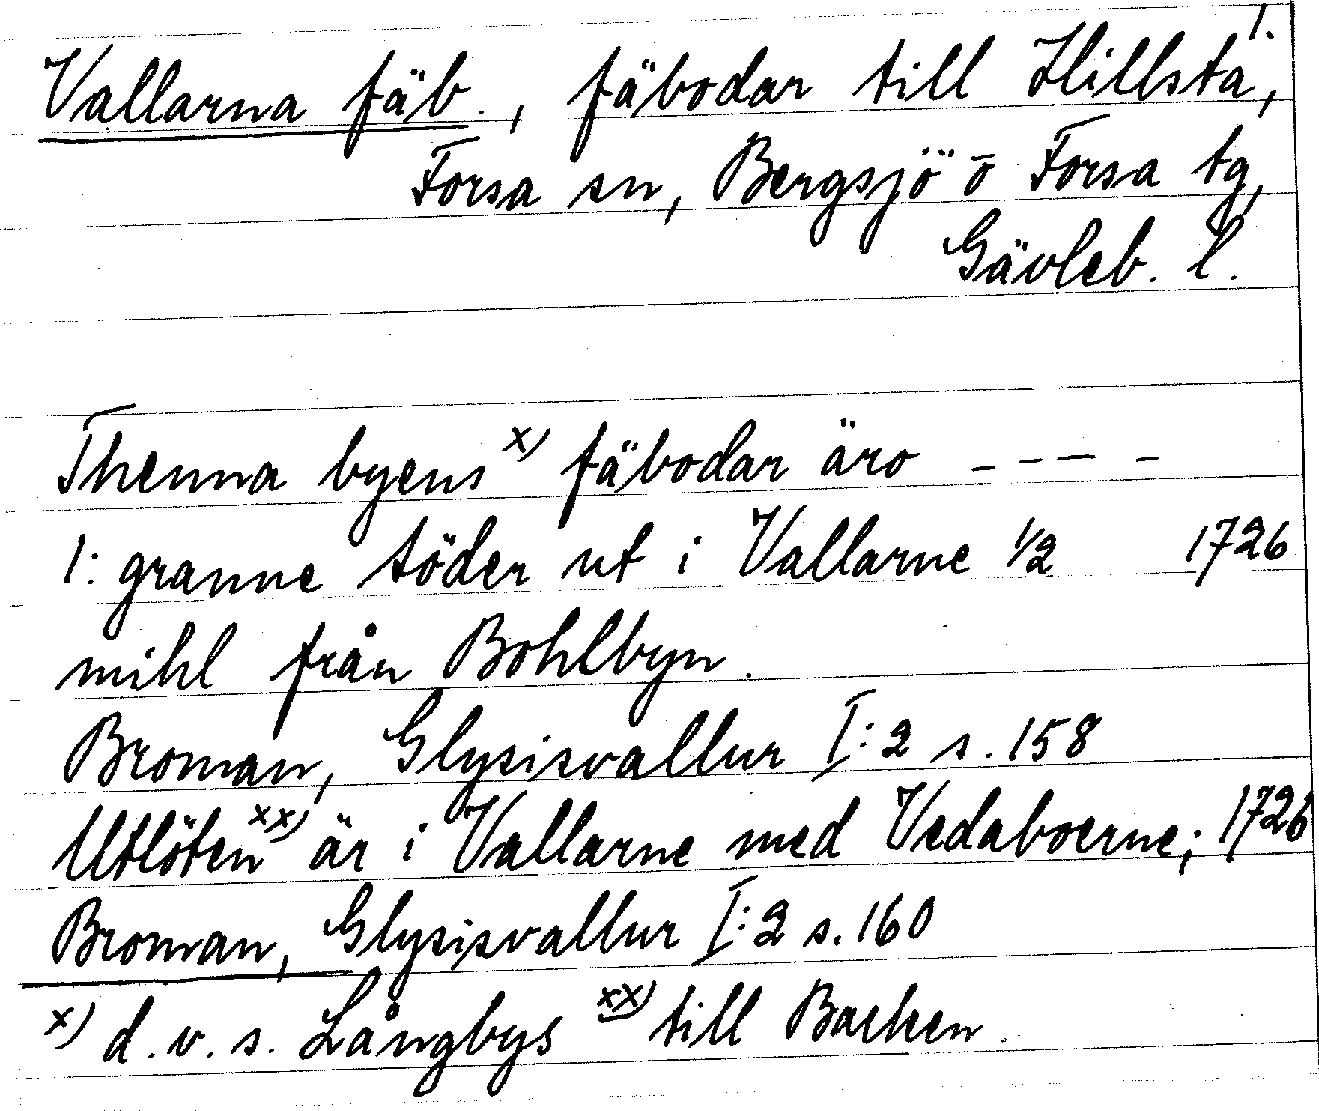 1.
Vallarna fäb., fäbodar till Hillsta,
Forsa sn, Bergsjö o Forsa tg,
Gävleb. l.
Thenna byens x) fäbodar äro - - - -
1: granne söder ut i Vallarne 1/2 1726
mihl från Bohlbyn.
Broman, Glysisvallur I:2 s. 158
Utlöten xx) är i Vallarne med Vedaboerne; 1726
Broman, Glysisvallur I:2 s. 160
x) d.v.s. Långbys xx) till Backen.